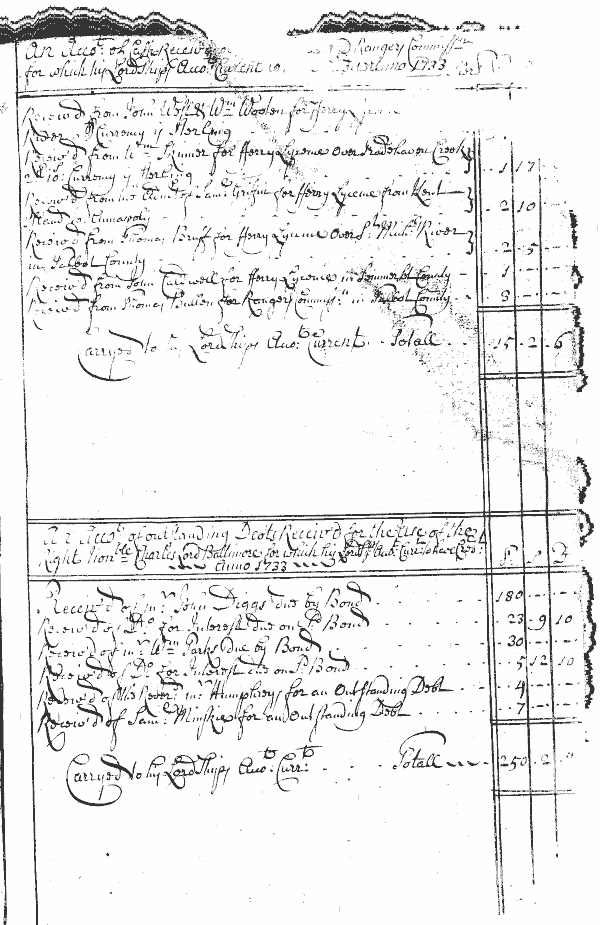 An Acco.t of Cash Receiv'd Rangers Commiss.ns
for which his Lordships Acco.t Current is Anno 1733
Receiv'd from John West & W.m Wooten for Ferry Lycene
River Currency is Sterling
Receiv'd from W.m Skinner for Ferry Lycene Over Treadhaven Creek } 1 17
Currency is Sterling
Receiv'd from the Acco.t of Sam.l Griffin for Ferry Lycene from Kent } 2 10
Island to Annapolis
Receiv'd from Thomas Bruff for Ferry Lycene Over S.t Mich.s River } 2 5
in Talbot County
Receiv'd from John Caldwell for Ferry Lycene in Sommerset County 1
Receiv'd from Thomas Bullen for Rangers Commiss.n in Talbot County 3
Carryed to his Lordships Acco.t Current Totall 15 2 6
An Acco.t of outstanding Debts Receiv'd for the Use of the
Right Hon.ble Charles Lord Baltimore for which his Lordsp.s Acco.t Curr.t is have Cred.t
Anno 1733
Receiv'd of m.r John Diggs due by Bond 180
Receiv'd of D.o for Interest due on s.d Bond 23 9 10
Receiv'd of m.r W.m Parks due by Bond 30
Receiv'd of D.o for Interest due on s.d Bond 5 12 10
Receiv'd of the Rever.d m.r Humphreys for an Outstanding Debt 4
Receiv'd of Sam.l Minskie for an Outstanding Debt 7
Carryed to his Lordships Acco.t Curr.t Totall 250 2 "